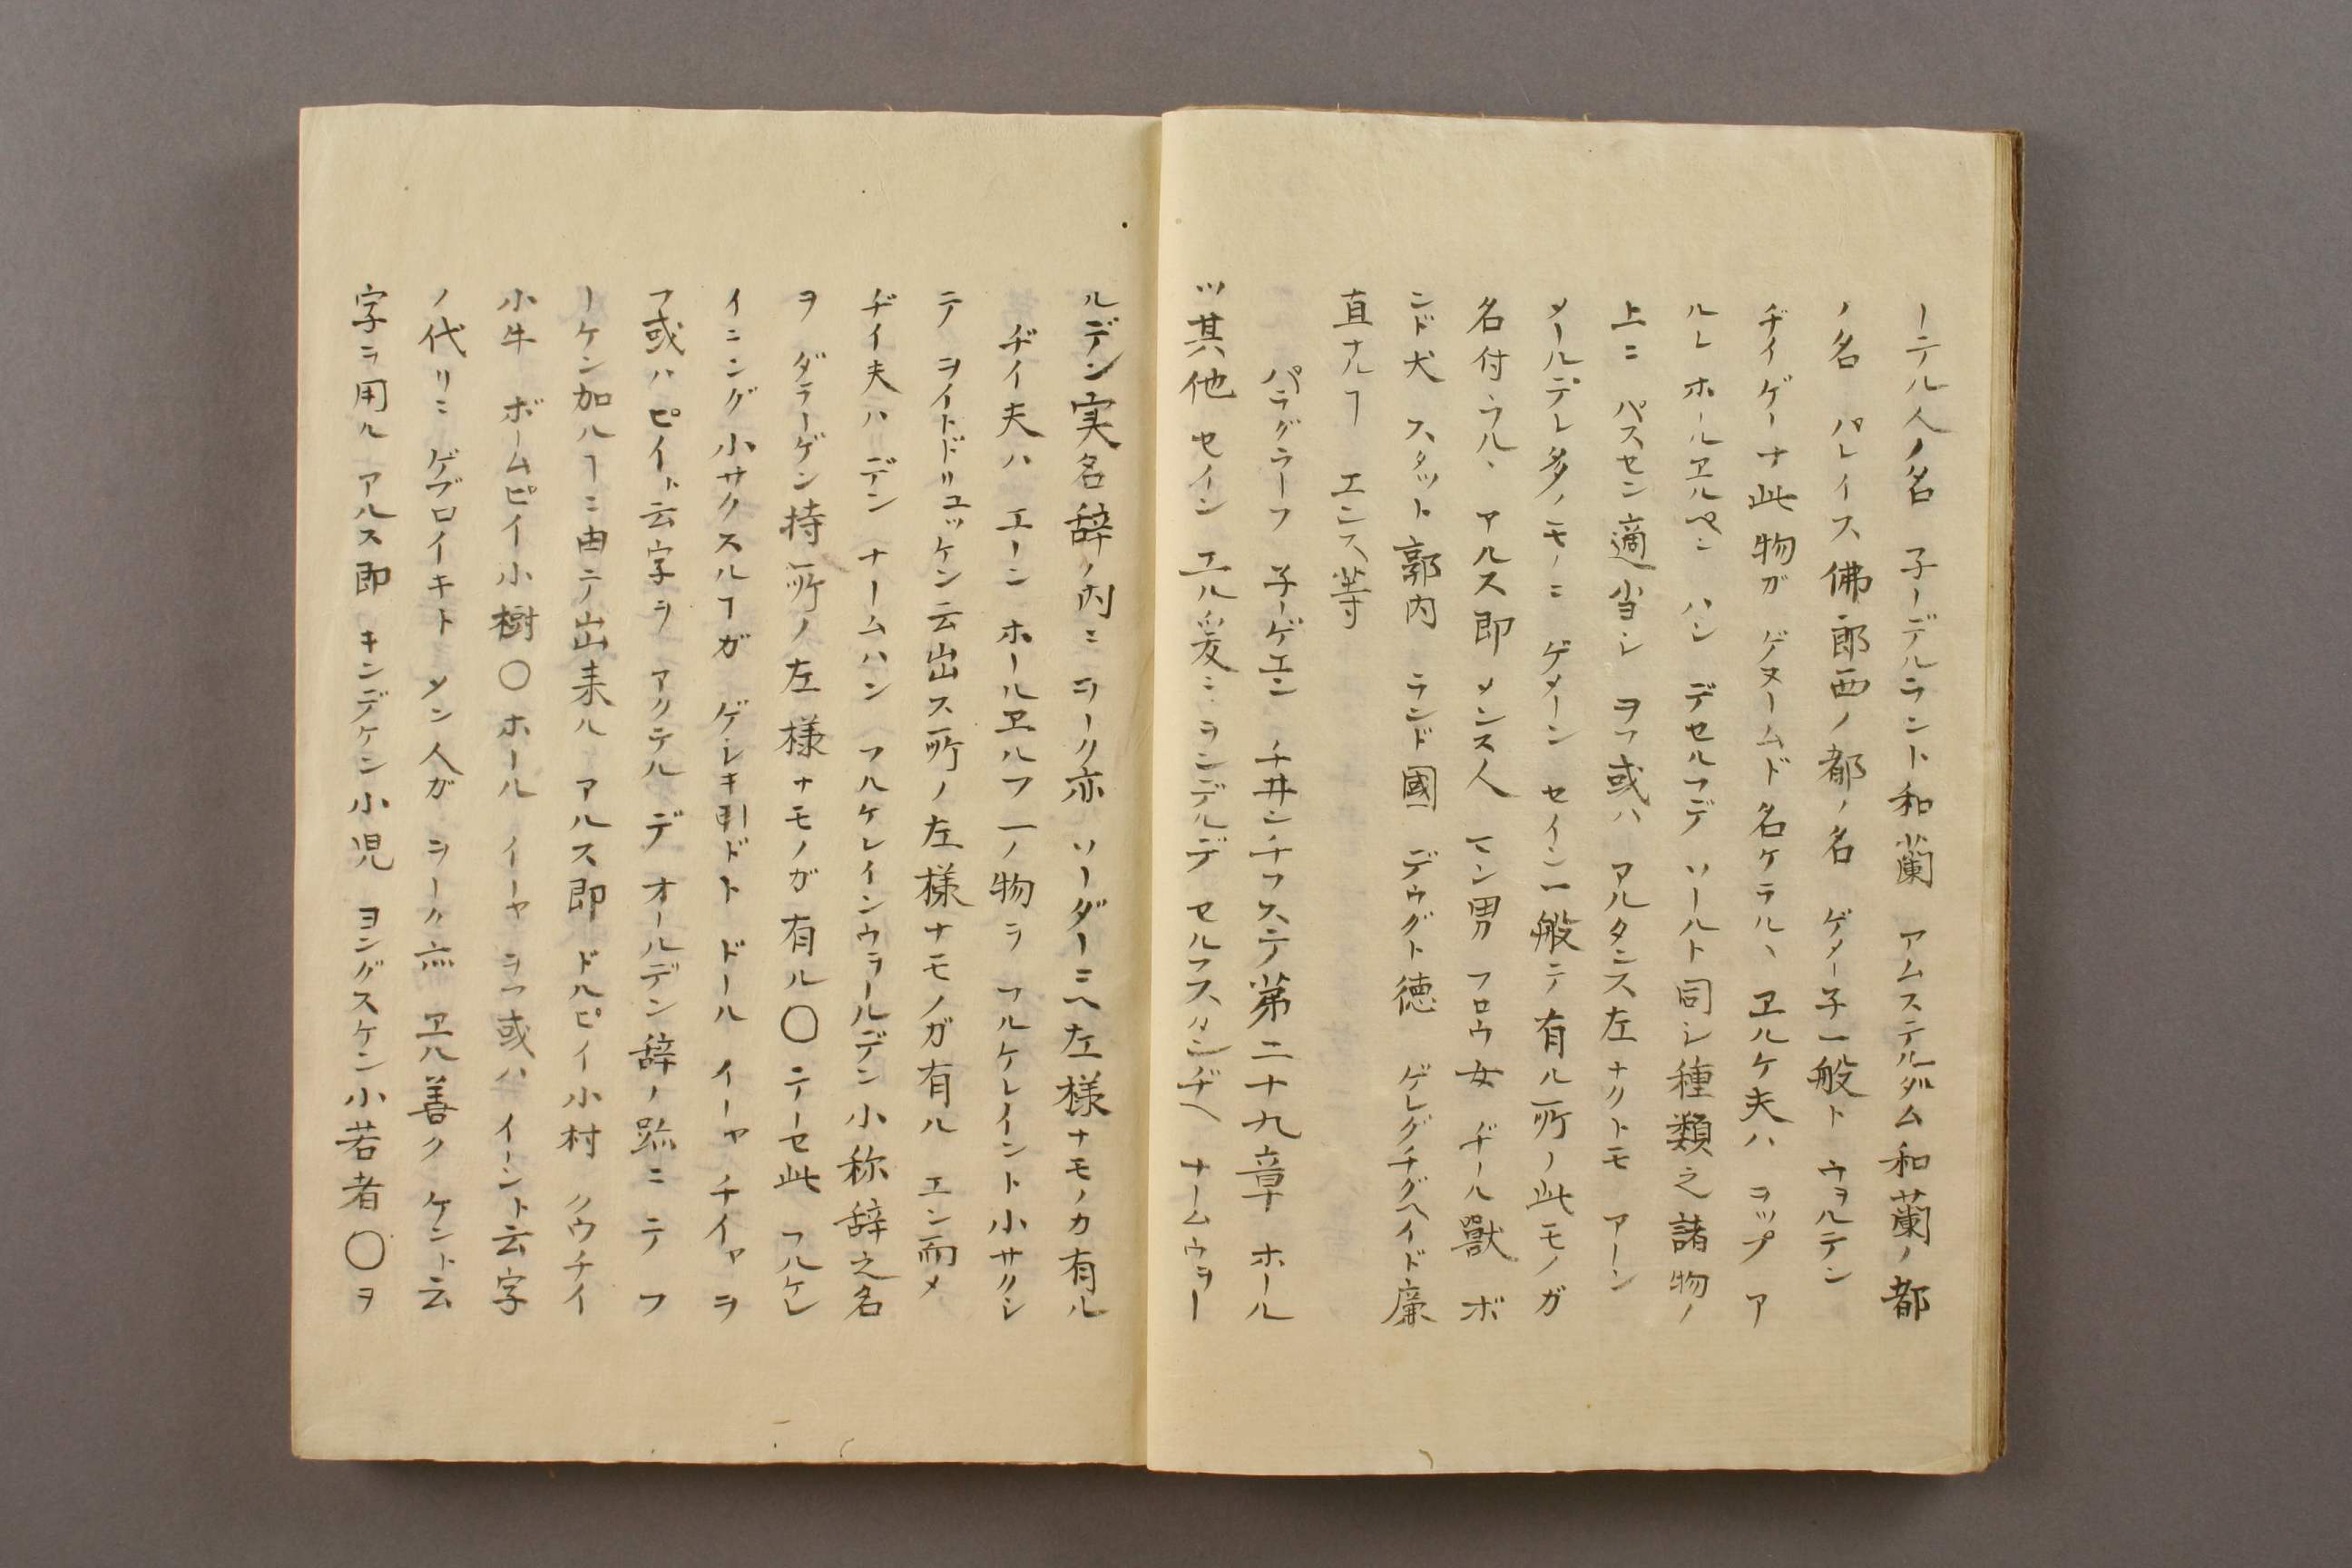 ーテル人ノ名 子ーデルラント和蘭 アムステルダム和蘭ノ都
ノ名 パレイス佛郎西ノ都ノ名 ゲメー子一般ト ウヲルテン
ヂイゲーナ此物ガ ゲヌームド名ケラルヽ ヱルケ夫ハ ヲップ ア
ルレ ホールヱルペン ハン デセルフデ ソールト同シ種類之諸物ノ
上ニ パスセン適当シ ヲフ或ハ アルタンス左ナクトモ アーン
メールデレ多ノモノニ ゲメーン セイン一般テ有ル所ノ此モノガ
名付ラルヽ アルス即 メンス人 マン男 フロウ女 ヂール獸 ボ
ンド犬 スタット郭内 ランド國 デウグト徳 ゲレグチグヘイド廉
直ナルヿ エンス等
パラグラーフ 子ーゲエン チ井ンチフステ第二十九章 ホール
ツ其他 セイン エル爰ニ ランデルデ セルフスタンヂヘ ナームウヲー
ルデン実名辞ノ内ニ ヲーク亦 ソーダーニヘ左様ナモノカ有ル
ヂイ夫ハ エーン ホールヱルフ一ノ物ヲ フルケレイント小サクシ
テ ヲイトドリュッケン云出ス所ノ左様ナモノガ有ル エン而メ
ヂイ夫ハ デン ナームハン フルケレインウヲールデン小称辞之名
ヲ ダラーゲン持所ノ左様ナモノガ有ル〇テーセ此 フルケレ
イニング小サクスルヿガ ゲレキ引ドト ドール イーヤ チイヤ ヲ
フ或ハ ピイト云字ヲ アクテル デ オールデン辞ノ跡ニ テ フ
ーケン加ルヿニ由テ出来ル アルス即 ドルピイ小村 クウチイ
小牛 ボームピイ小樹〇ホール イーヤ ヲフ或ハ イーント云字
ノ代リニ ゲブロイキト メン人ガ ヲーク亦 ヱル善ク ケント云
字ヲ用ル アルス即 キンデケン小児 ヨングスケン小若者〇ヲ